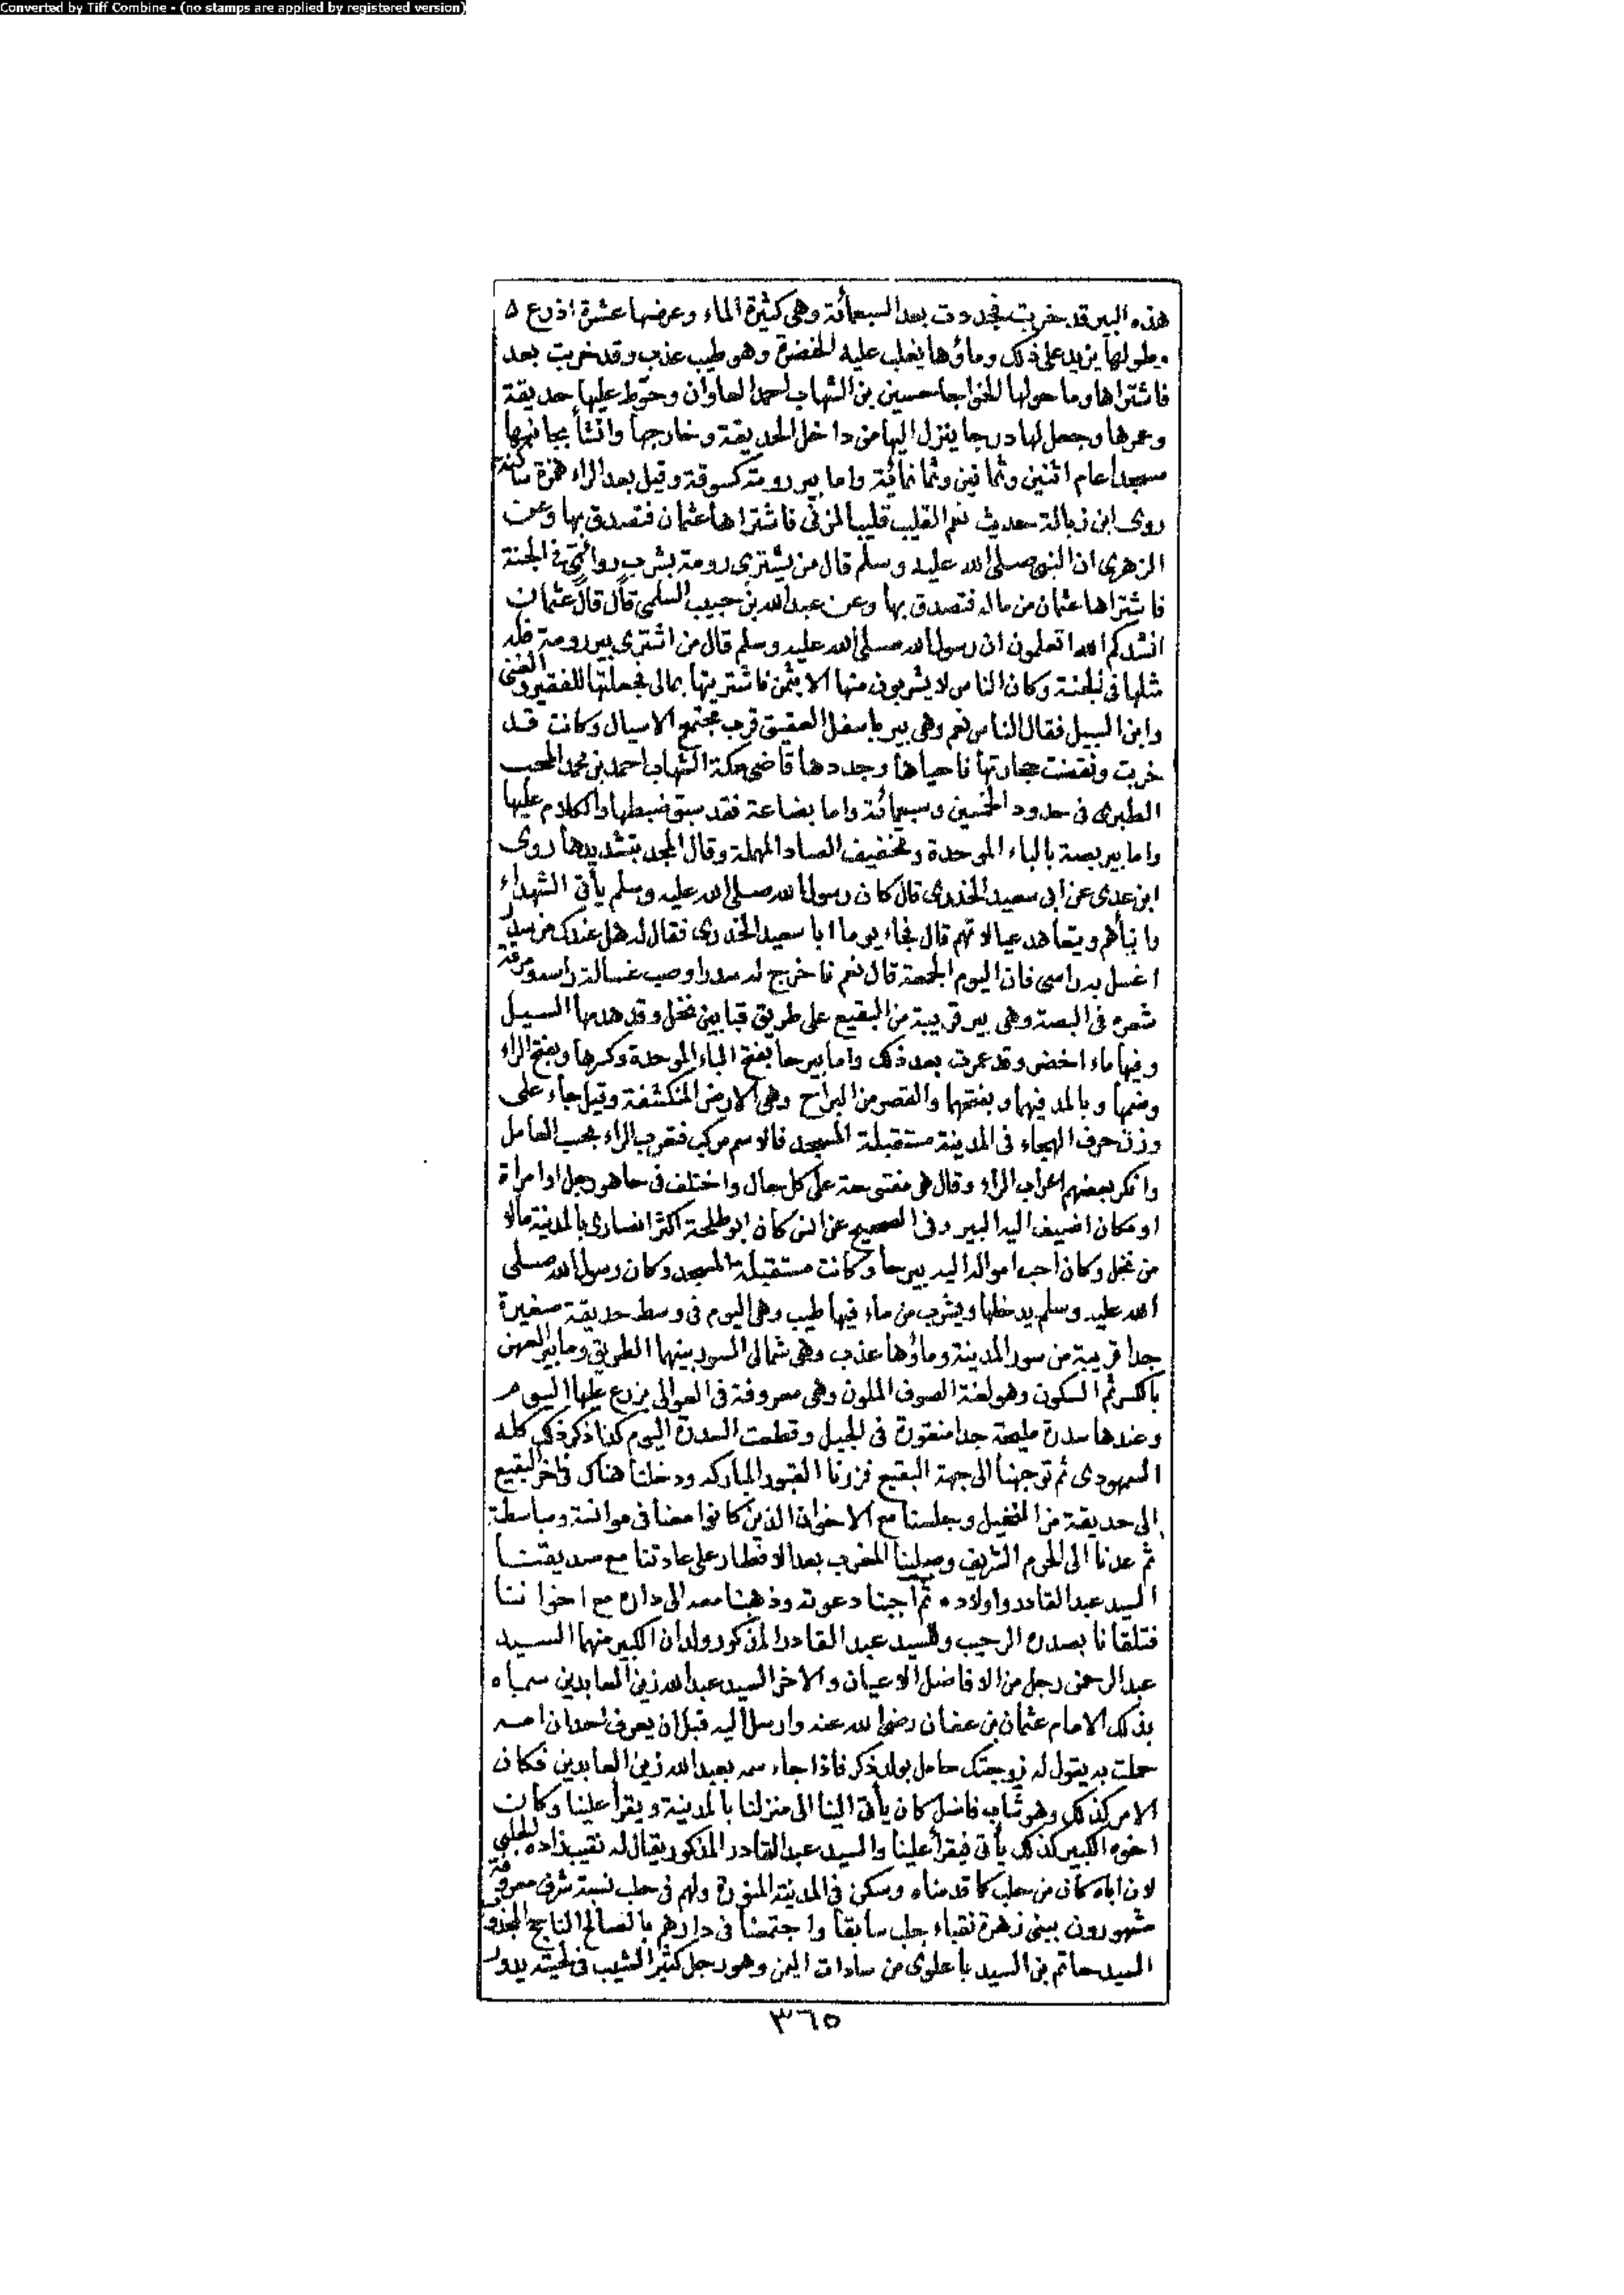 Converted by Tiff Combine - (no stamps are applied by registered version)
هذه البير قد خربت فجددت بعد السبعمائة وهى كثيرة الماء وعرضها عشرة اذرع
وطولها يزيد على ذلك وماؤها يغلب عليه الخضرة وهو طيب عذب وقد خربت بعد
فاشتراها وما حولها الخواجا حسين بن الشهاب احمد العاوان وحوّط عليها حديقة
وعمرها وجعل لها درجا ينزل اليها من داخل الحديقة وخارجها وانشأ بجانبها
مسجدا عام اثنين وثمانين وثمانمائة واما بير رومة كسوقة وقيل بعد الراء همزة ساكنة
روى ابن زبالة حديث نعم القليب قليب المزنى فاشتراها عثمان فتصدق بها وعن
الزهرى ان النبى صلى الله عليه وسلم قال من يشترى رومة بشرب رواء فى الجنة
فاشتراها عثمان من ماله فتصدق بها وعن عبدالله بن حبيب السلمى قال قال عثمان
انشدكم الله اتعلمون ان رسول الله صلى الله عليه وسلم قال من اشترى بير رومة فله
مثلها فى الجنة وكان الناس لا يشربون منها الا بثمن فاشتريتها بمالى فجعلتها للفقير والغنى
وابن السبيل فقال الناس نعم وهى بير باسفل العقيق قرب مجتمع الاسيال وكانت قد
خربت ونقضت حجارتها فاحياها وجددها قاضى مكة الشهاب احمد بن محمد المحب
الطبرى فى حدود الخمسين وسبعمائة واما بضاعة فقد سبق ضبطها والكلام عليها
واما بير بصة بالباء الموحدة وتخفيف الصاد المهملة وقال المجد بتشديدها روى
ابن عدى عن ابى سعيد الخدرى قال كان رسول الله صلى الله عليه وسلم يأتى الشهداء
وابناهم ويتعاهد عيالاتهم قال فجاء يوما ابا سعيد الخدرى فقال له هل عندك من سدر
اغسل به راسى فان اليوم الجمعة قال نعم فاخرج له سدرا وصب غسالة راسه ومراقة
شعره فى البصة وهى بير قريبة من البقيع على طريق قبا بين نخل وقد هدمها السيل
وفيها ماء اخضر وقد عمرت بعد ذلك واما بيرحا بفتح الباء الموحدة وكسرها وبفتح الراء
وضمها وبالمد فيهما وبفتحهما والقصر من البراح وهى الارض المنكشفة وقيل حاء على
وزن حرف الهجاء فى المدينة مستقبلة المسجد فالاسم مركب فتعرب الراء بحسب العامل
وانكر بعضهم اعراب الراء وقال هى مفتوحة على كل حال واختلف فى حا هو رجل او امراة
او مكان اضيف اليه البير وفى الصحيح عن انس كان ابو طلحة اكثر انصارى بالمدينة مالا
من نخل وكان احب امواله اليه بيرحا وكانت مستقبلة المسجد وكان رسول الله صلى
الله عليه وسلم يدخلها ويشرب من ماء فيها طيب وهى اليوم فى وسط حديقة صغيرة
جدا قريبة من سور المدينة وماؤها عذب وهى شمالى السور بينهما الطريق وما بير العهن
بالكسر ثم السكون وهو لغة الصوف الملون وهى معروفة فى العوالى يزرع عليها اليوم
وعندها سدرة مليحة جدا منقورة فى الجبل وقطعت السدرة اليوم كذا ذكر ذلك كله
السمهودى ثم توجهنا الى جهة البقيع فزرنا القبور المباركه ودخلنا هناك فى اخر البقيع
الى حديقة من النخيل وجلسنا مع الاخوان الذين كانوا معنا فى موانسة ومباسطة
ثم عدنا الى الحرم الشريف وصلينا المغرب بعد الافطار على عادتنا مع صديقتنا
السيد عبد القادر واولاده ثم اجبنا دعوته وذهبنا معه الى داره مع اخواننا
فتلقانا بصدره الرحيب وللسيد عبد القادر المذكور ولدان الكبير منهما السيد
عبد الرحمن رجل من الافاضل الاعيان والاخر السيد عبدالله زين العابدين سماه
بذلك الامام عثمان بن عفان رضى الله عنه وارسل اليه قبل ان يعرف احد ان امه
حملت به يقول له زوجتك حامل بولد ذكر فاذا جاء سمه بعبدالله زين العابدين فكان
الامر كذلك وهو شاب فاضل كان يأتى الينا الى منزلنا بالمدينة ويقرأ علينا وكان
اخوه الكبير كذلك يأتى فيقرأ علينا والسيد عبد القادر المذكور يقال له نقيب زاده الحلبى
لان اباه كان من حلب كما قدمناه وسكن فى المدينة المنورة ولهم فى حلب نسبة شرف معروفة
مشهورون ببنى زهرة نقباء حلب سابقا واجتمعنا فى دارهم بالصالح الناجح المجذوب
السيد حاتم بن السيد باعلوى من سادات اليمن وهو رجل كثير الشيب فى لحيته يدور
٣٦٥